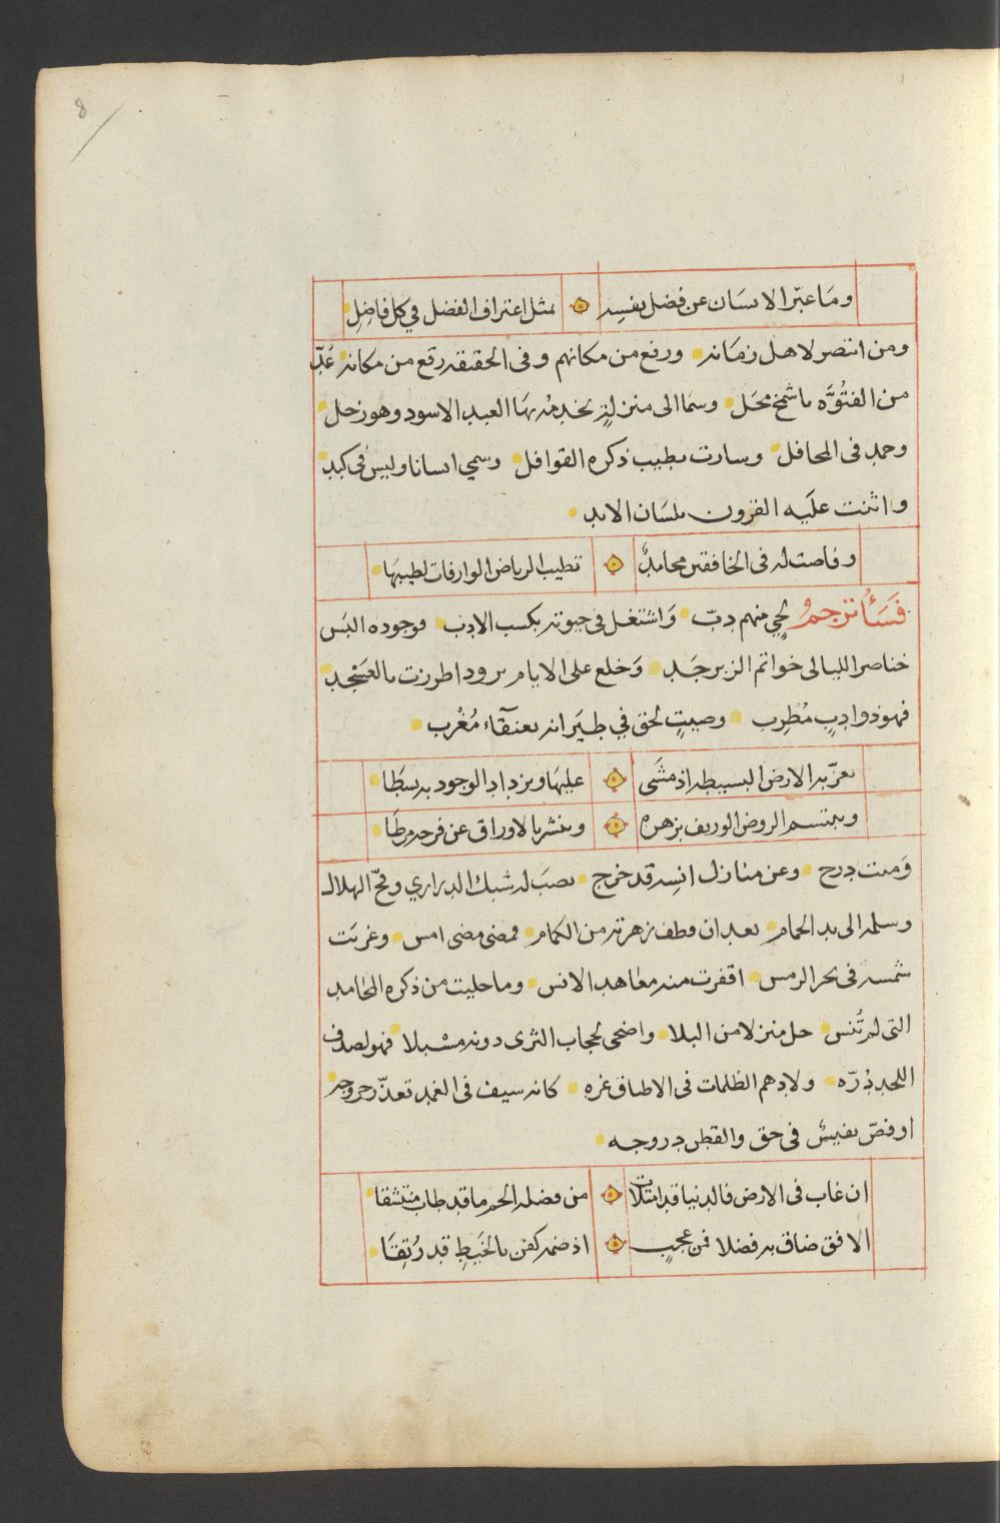 8
وما عبّر الانسان عن فضل نفسه ۞ بمثل اعتراف الفضل في كل فاضلِ
ومن انتصر لاهل زمانه ورفع من مكانهم وفى الحقيقة رفع من مكانه عُدّ
من الفتوّه باشمخ محل وسما الى منزلةٍ يخدمه بها العبد الاسود وهو زحل
وحمد فى المحافل وسارت بطيب ذكره القوافل وسمي انسانا وليس في كبد
واثنت عليه القرون بلسان الابد
وفاضت له فى الخافقين محامدٌ ۞ تطيب الرياض الوارفات لطيبها
فسأترجم لحي منهم دبّ واشتغل في حيوته بكسب الادب فوجوده البس
خناصر الليالى خواتم الزبرجد وخلع على الايام برودا طرزت بالعسجد
فهو ذو ادبٍ مُطرِب وصيتٍ لحق في طيرانه بعنقآء مُغْرب
تعزّ به الارض البسيطه اذ مشى ۞ عليها ويزداد الوجود به بسطا
ويبتسم الروض الوريف بزهره ۞ وينشر بالاوراق عن فرحه مرطا
وميت درج وعن منازل انسه قد خرج نصب له شبك الدراري وفخّ الهلال
وسلمه الى يد الحمام بعد ان قطف زهرته من الكمام فمضى مضى امس وغربت
شمسه فى بحر الرمس اقفرت منه معاهد الانس وما خليت من ذكره المحامد
التى لم تُنس حل منزلا من البلا واضحى لحجاب الثرى دونه مسبلا فهو لصدف
اللحد دُرّه ولادهم الظلمات فى الاطباق غره كانه سيف فى الغمد تعذّر خروجه
او فصّ نفيسٌ فى حق والقطن دروجه
ان غاب فى الارض فالدنيا قد امتلات ۞ من فضله الجم ما قد طاب منتشقا
الافق ضاق به فضلا فمن عجبٍ ۞ اذ ضمه كفن بالخيط قد رُتِقا